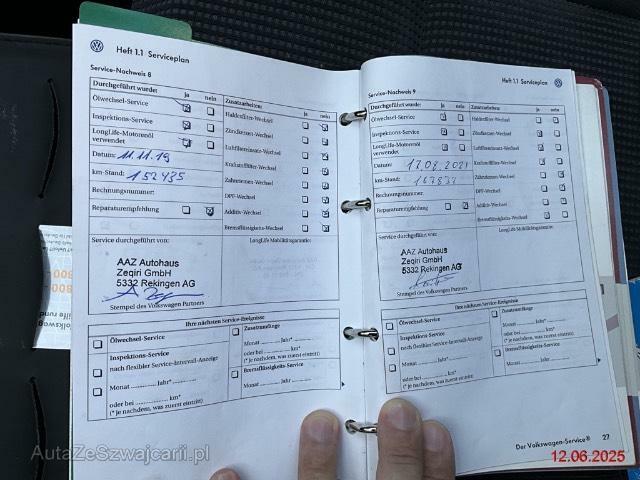 Heft 1.1 Serviceplan
Service-Nachweis 8
Durchgeführt wurde: ja nein
Zusatzarbeiten: ja nein
Ölwechsel-Service
Inspektions-Service
LongLife-Motorenöl verwendet
Datum: 11.11.19
km-Stand: 152435
Rechnungsnummer:
Reparaturempfehlung
Staubfilter-Wechsel
Zündkerzen-Wechsel
Luftfiltereinsatz-Wechsel
Kraftstofffilter-Wechsel
Zahnriemen-Wechsel
DPF-Wechsel
Additiv-Wechsel
Bremsflüssigkeits-Wechsel
Service durchgeführt von:
LongLife Mobilitätsgarantie:
AAZ Autohaus
Zeqiri GmbH
5332 Rekingen AG
Stempel des Volkswagen Partners
Ihre nächsten Service-Ereignisse
Ölwechsel-Service
Inspektions-Service
nach flexibler Service-Intervall-Anzeige
Monat ........... Jahr*
oder bei ........... km*
(* je nachdem, was zuerst eintritt)
Zusatzumfänge
Monat ........... Jahr*
oder bei ........... km*
(* je nachdem, was zuerst eintritt)
Bremsflüssigkeits-Service
Monat ........... Jahr
Heft 1.1 Serviceplan
Service-Nachweis 9
Durchgeführt wurde: ja nein
Zusatzarbeiten: ja nein
Ölwechsel-Service
Inspektions-Service
LongLife-Motorenöl verwendet
Datum: 17.08.2021
km-Stand:
Rechnungsnummer:
Reparaturempfehlung
Zündkerzen-Wechsel
Luftfiltereinsatz-Wechsel
Kraftstofffilter-Wechsel
Zahnriemen-Wechsel
DPF-Wechsel
Additiv-Wechsel
Bremsflüssigkeits-Wechsel
Service durchgeführt von:
LongLife Mobilitätsgarantie:
AAZ Autohaus
Zeqiri GmbH
5332 Rekingen AG
Stempel des Volkswagen Partners
Ihre nächsten Service-Ereignisse
Ölwechsel-Service
Inspektions-Service
nach flexibler Service-Intervall-Anzeige
Monat ........... Jahr*
oder bei ........... km*
(* je nachdem, was zuerst eintritt)
Zusatzumfänge
Monat ........... Jahr*
oder bei ........... km*
(* je nachdem, was zuerst eintritt)
Bremsflüssigkeits-Service
Monat ........... Jahr
Der Volkswagen-Service® 27
AutaZeSzwajcarii.pl
12.06.2025